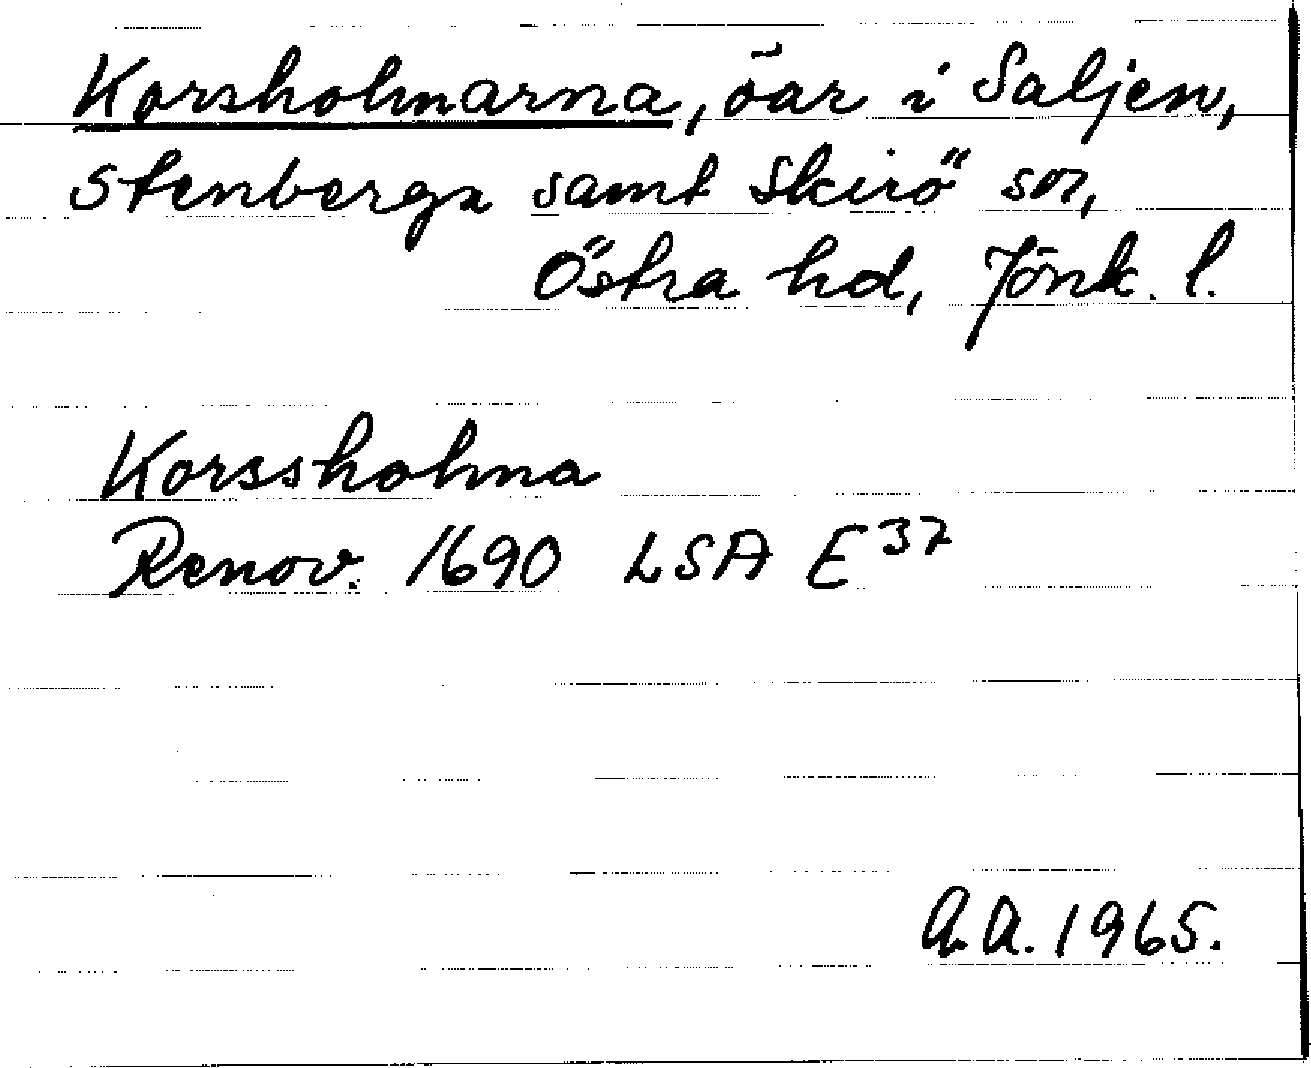 Korsholmarna, öar i Saljen,
Stenberga samt Skirö snr,
Östra hd, Jönk. l.
Korssholma
Renov. 1690 LSA E 37
A.A. 1965.